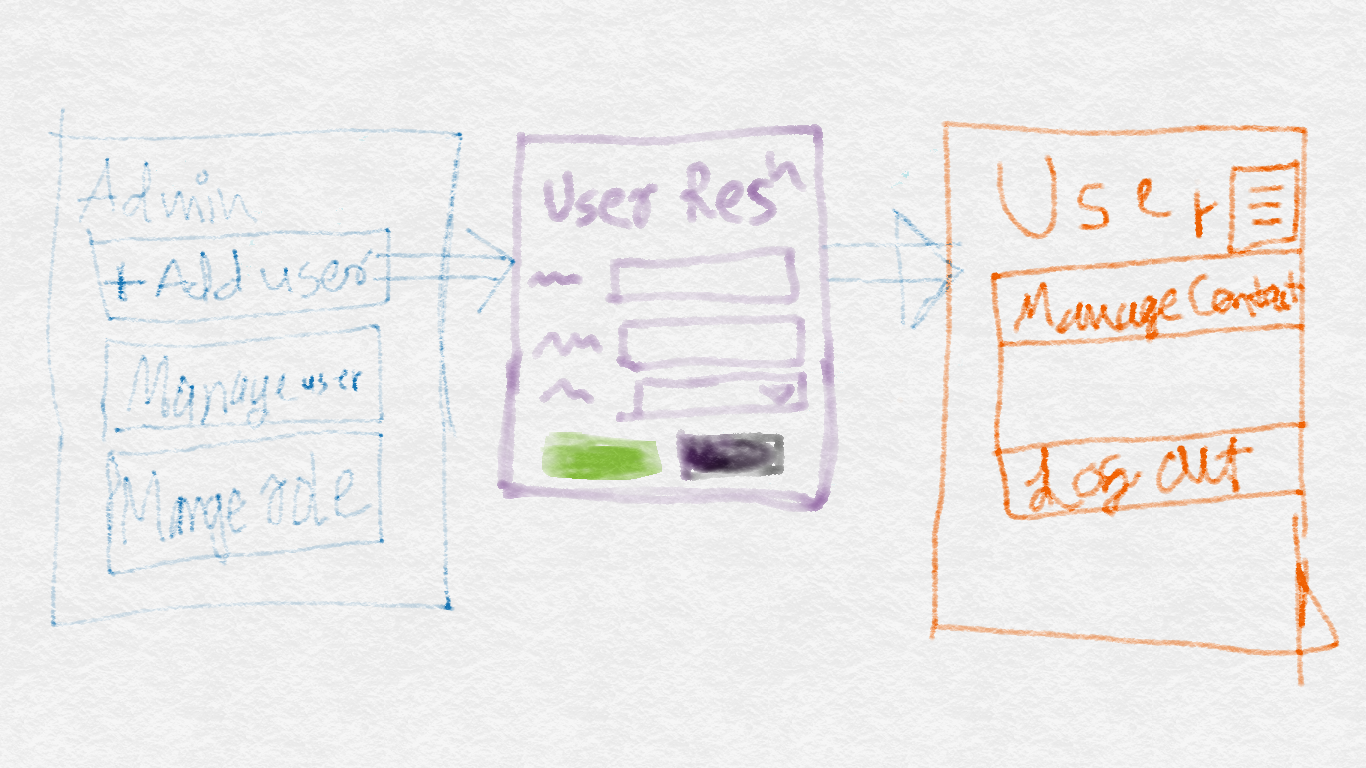 Admin
+ Add user
Manage user
Mange role
User Resh
User
Manage Contact
Log out